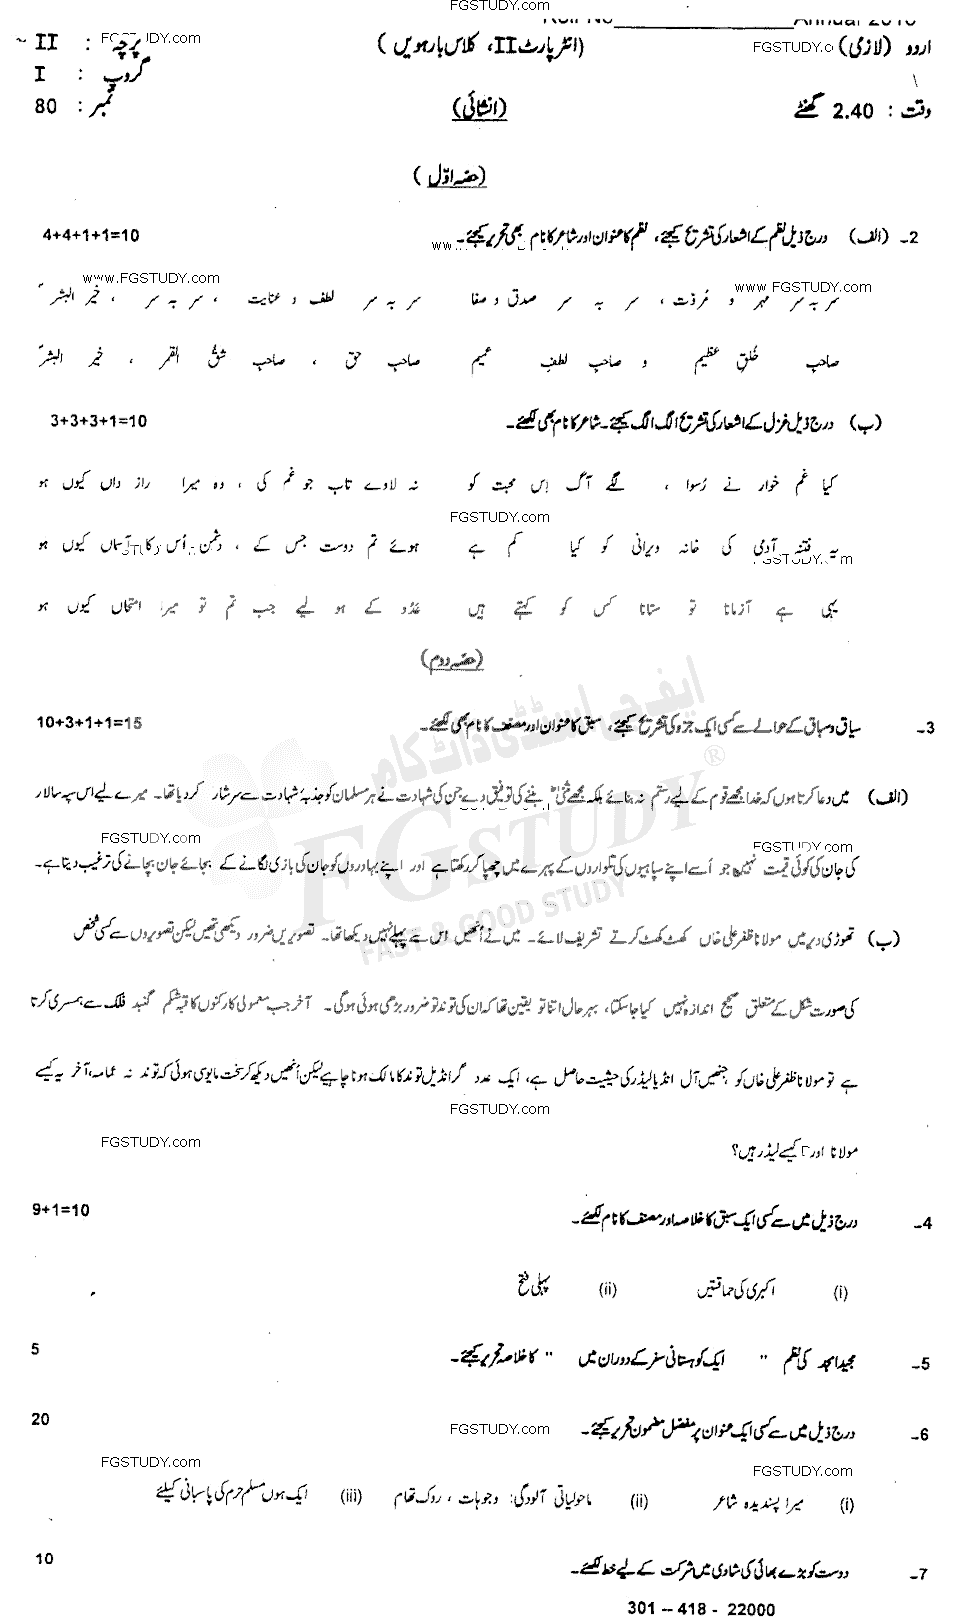 FGSTUDY.com
Roll No Annual 2018
اردو (لازمی) FGSTUDY.c (انٹر پارٹ II، کلاس بارہویں) پرچہ : II FGSTUDY.com
گروپ : I
وقت : 2.40 گھنٹے (انشائی) نمبر : 80
(حصہ اوّل)
2۔ (الف) درج ذیل نظم کے اشعار کی تشریح کیجئے، نظم کا عنوان اور شاعر کا نام بھی تحریر کیجئے۔ 4+4+1+1=10
www.FGSTUDY.com www.FGSTUDY.com
سر بہ سر مہر و مُرَوّت ، سر بہ سر صدق و صفا سر بہ سر لطف و عنایت ، سر بہ سر ، خیر البشرؐ
صاحبِ خُلقِ عظیم و صاحبِ لطفِ عمیم صاحبِ حق ، صاحبِ شقُّ القمر ، خیر البشرؐ
(ب) درج ذیل غزل کے اشعار کی تشریح الگ الگ کیجئے۔ شاعر کا نام بھی لکھئے۔ 3+3+3+1=10
کیا غم خوار نے رُسوا ، لگے آگ اِس محبت کو نہ لاوے تاب جو غم کی ، وہ میرا راز داں کیوں ہو
FGSTUDY.com
یہ فتنہ آدمی کی خانہ ویرانی کو کیا کم ہے ہوئے تم دوست جس کے ، دشمن اُس کا آسماں کیوں ہو
یہی ہے آزمانا تو ستانا کس کو کہتے ہیں عدُو کے ہو لیے جب تم تو میرا امتحاں کیوں ہو
(حصّہ دوم)
ایف جی اسٹڈی ڈاٹ کام
3۔ سیاق و سباق کے حوالے سے کسی ایک جزو کی تشریح کیجئے، سبق کا عنوان اور مصنف کا نام بھی لکھئے۔ 10+3+1+1=15
(الف) میں دعا کرتا ہوں کہ خدا مجھے قوم کے لیے رستم نہ بنائے بلکہ مجھے مثنیٰؓ بننے کی توفیق دے جن کی شہادت نے ہر مسلمان کو جذبۂ شہادت سے سرشار کر دیا تھا۔ میرے لیے اس سپہ سالار
FGSTUDY.com FGSTUDY.com
FGSTUDY ®
کی جان کی کوئی قیمت نہیں جو اُسے اپنے سپاہیوں کی تلواروں کے پہرے میں چھپا کر رکھتا ہے اور اپنے بہادروں کو جان کی بازی لگانے کے بجائے جان بچانے کی ترغیب دیتا ہے۔
FAST & GOOD STUDY
(ب) تھوڑی دیر میں مولانا ظفر علی خاں کھٹ کھٹ کرتے تشریف لائے۔ میں نے اُنھیں اس سے پہلے نہیں دیکھا تھا۔ تصویریں ضرور دیکھی تھیں لیکن تصویروں سے کسی شخص
کی صورت شکل کے متعلق صحیح اندازہ نہیں کیا جا سکتا، بہر حال اتنا تو یقین تھا کہ ان کی توند تو ضرور بڑھی ہوئی ہوگی۔ آخر جب معمولی کارکنوں کا قبۂ شکم گنبدِ فلک سے ہمسری کرتا
ہے تو مولانا ظفر علی خاں کو جنھیں آل انڈیا لیڈر کی حیثیت حاصل ہے، ایک عدد گرانڈیل توند کا مالک ہونا چاہیے لیکن اُنھیں دیکھ کر سخت مایوسی ہوئی کہ توند نہ عمامہ، آخر یہ کیسے
FGSTUDY.com
مولانا اور کیسے لیڈر ہیں؟ FGSTUDY.com
4۔ درج ذیل میں سے کسی ایک سبق کا خلاصہ اور مصنف کا نام لکھئے۔ 9+1=10
(i) اکبری کی حماقتیں (ii) پہلی فتح
5۔ مجید امجد کی نظم " ایک کوہستانی سفر کے دوران میں " کا خلاصہ تحریر کیجئے۔ 5
6۔ درج ذیل میں سے کسی ایک عنوان پر مفصل مضمون تحریر کیجئے۔ 20
FGSTUDY.com
FGSTUDY.com FGSTUDY.com
(i) میرا پسندیدہ شاعر (ii) ماحولیاتی آلودگی: وجوہات ، روک تھام (iii) ایک ہوں مسلم حرم کی پاسبانی کیلئے
7۔ دوست کو بڑے بھائی کی شادی میں شرکت کے لیے خط لکھئے۔ 10
301 -- 418 - 22000